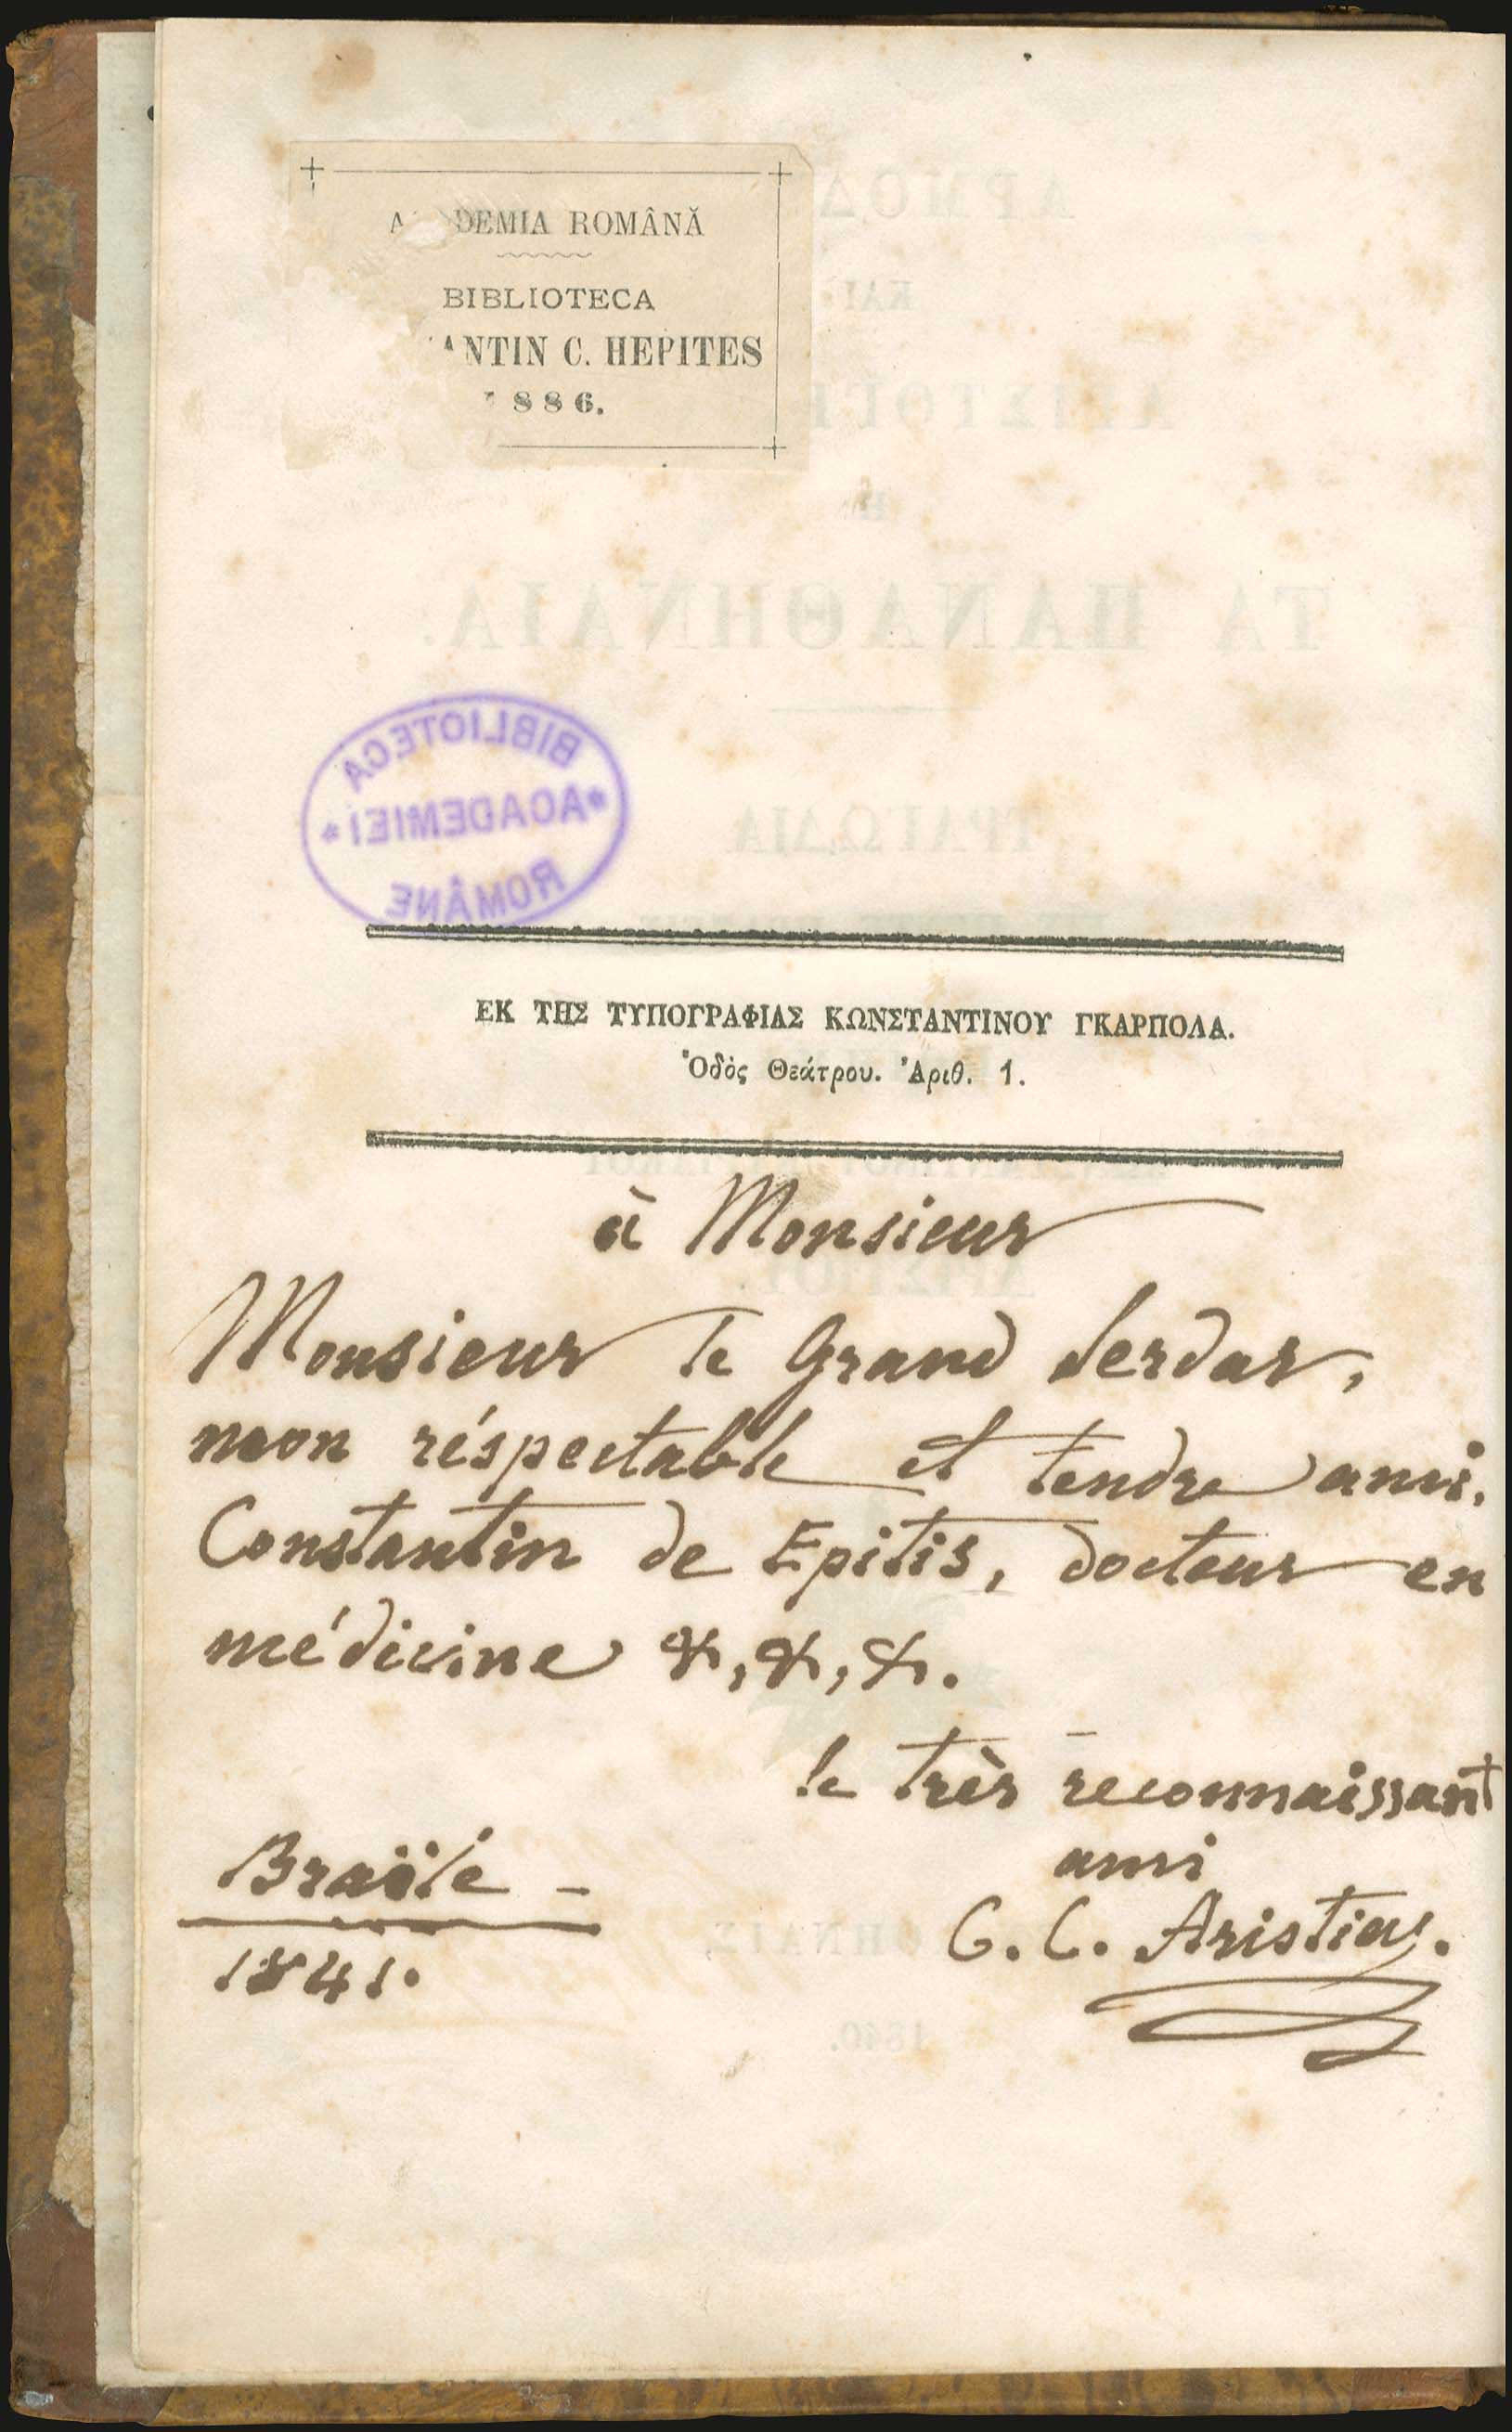 DEMIA ROMÂNĂ
BIBLIOTECA
ANTIN C. HEPITES
886.
BIBLIOTECA
*ACADEMIEI*
ROMÂNE
ΕΚ ΤΗΣ ΤΥΠΟΓΡΑΦΙΑΣ ΚΩΝΣΤΑΝΤΙΝΟΥ ΓΚΑΡΠΟΛΑ.
Ὁδὸς Θεάτρου. Ἀριθ. 1.
à Monsieur
Monsieur le Grand Serdar,
mon réspectable et tendre ami,
Constantin de Epitis, docteur en
médicine &, &, &.
le très reconnaissant
ami
Braïle -
C. C. Aristias.
1841.
ΚΑΙ
ΤΑ ΠΑΝΑΘΗΝΑΙΑ.
ΤΡΑΓΩΔΙΑ
1840.